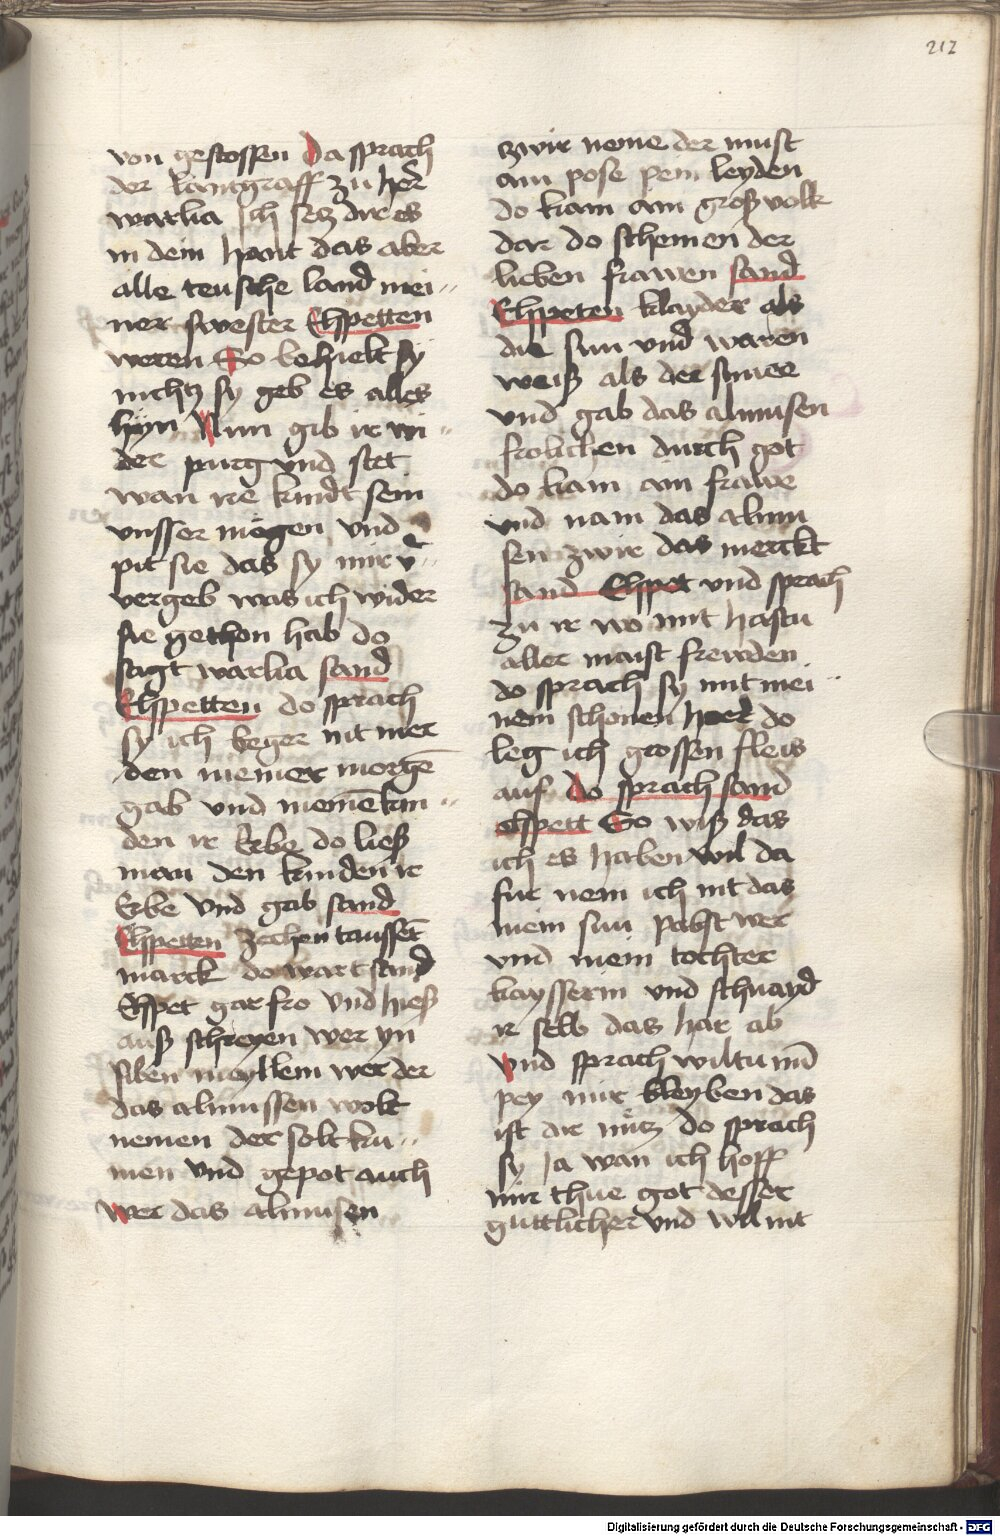 212
von gestossen Da sprach
der lantgraff zu her
warlia Ich setz dir es
in dein hant das aber
alle teusche land mei
ner swester Elspetten
weren So behielt sy
nichtz sy geb es alles
hyn Nun gib ir wi
der purg vnd stet
wan ire kindt sein
vnsser mögen vnd
pit sie das sy mir v
vergeb was ich wider
sie gethon hab do
sagt warlia sand
Elspetten do sprach
sy ich beger nit mer
den meiner morgē
gab vnd meinē kin
den ir Erbe do ließ
man den kinden ir
Erbe vnd gab sand
Elspetten zechen taussēt
marck do wart sand
Elspet gar fro vnd hieß
auß schreyen wer yn
siben meyllem wer der
das almussen wolt
nemen der solt ku
men vnd gepot auch
wer das almusen
zwir neme der must
ain pose pein leyden
do kam ain groß volk
dar do schemen der
lieben frawen sand
Elspeten klayder als
die sun vnd waren
weiß als der snee
vnd gab das almusen
frolichen durch got
do kam ain frawe
vnd nam das almu
sen zwir das merckt
sand Elspet vnd sprach
zu ir wo mit hastu
aller maist frewden
do sprach sy mit mei
nem schonen hoer do
leg ich grossen fleis
auf do sprach sand
elspett So wiß das
ich es haben wil da
fur nem ich nit das
mein sun pabst wer
vnd mein tochter
kaysserin vnd schnayd
ir selb das har ab
Vnd sprach wiltu nū
pey mir bleyben das
ist dir nütz do sprach
sy Ja wan ich hoff
mir thue got desser
guttlicher vnd wil nit
Digitalisierung gefördert durch die Deutsche Forschungsgemeinschaft - DFG